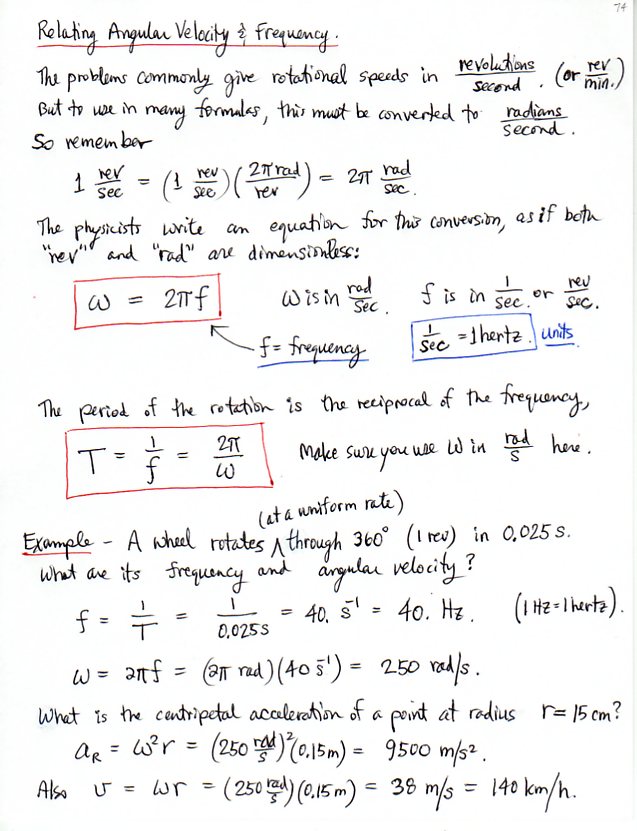 74
Relating Angular Velocity & Frequency.
The problems commonly give rotational speeds in revolutions/second. (or rev/min.)
But to use in many formulas, this must be converted to radians/second.
So remember
1 rev/sec = (1 rev/sec)(2π rad/rev) = 2π rad/sec.
The physicists write an equation for this conversion, as if both
"rev" and "rad" are dimensionless:
ω = 2πf ω is in rad/sec. f is in 1/sec. or rev/sec.
f = frequency 1/sec = 1 hertz. units
The period of the rotation is the reciprocal of the frequency,
T = 1/f = 2π/ω Make sure you use ω in rad/s here.
(at a uniform rate)
Example - A wheel rotates ∧ through 360° (1 rev) in 0.025 s.
What are its frequency and angular velocity?
f = 1/T = 1/0.025 s = 40. s⁻¹ = 40. Hz. (1 Hz = 1 hertz).
ω = 2πf = (2π rad)(40 s⁻¹) = 250 rad/s.
What is the centripetal acceleration of a point at radius r = 15 cm?
a_R = ω²r = (250 rad/s)²(0.15 m) = 9500 m/s².
Also v = ωr = (250 rad/s)(0.15 m) = 38 m/s = 140 km/h.